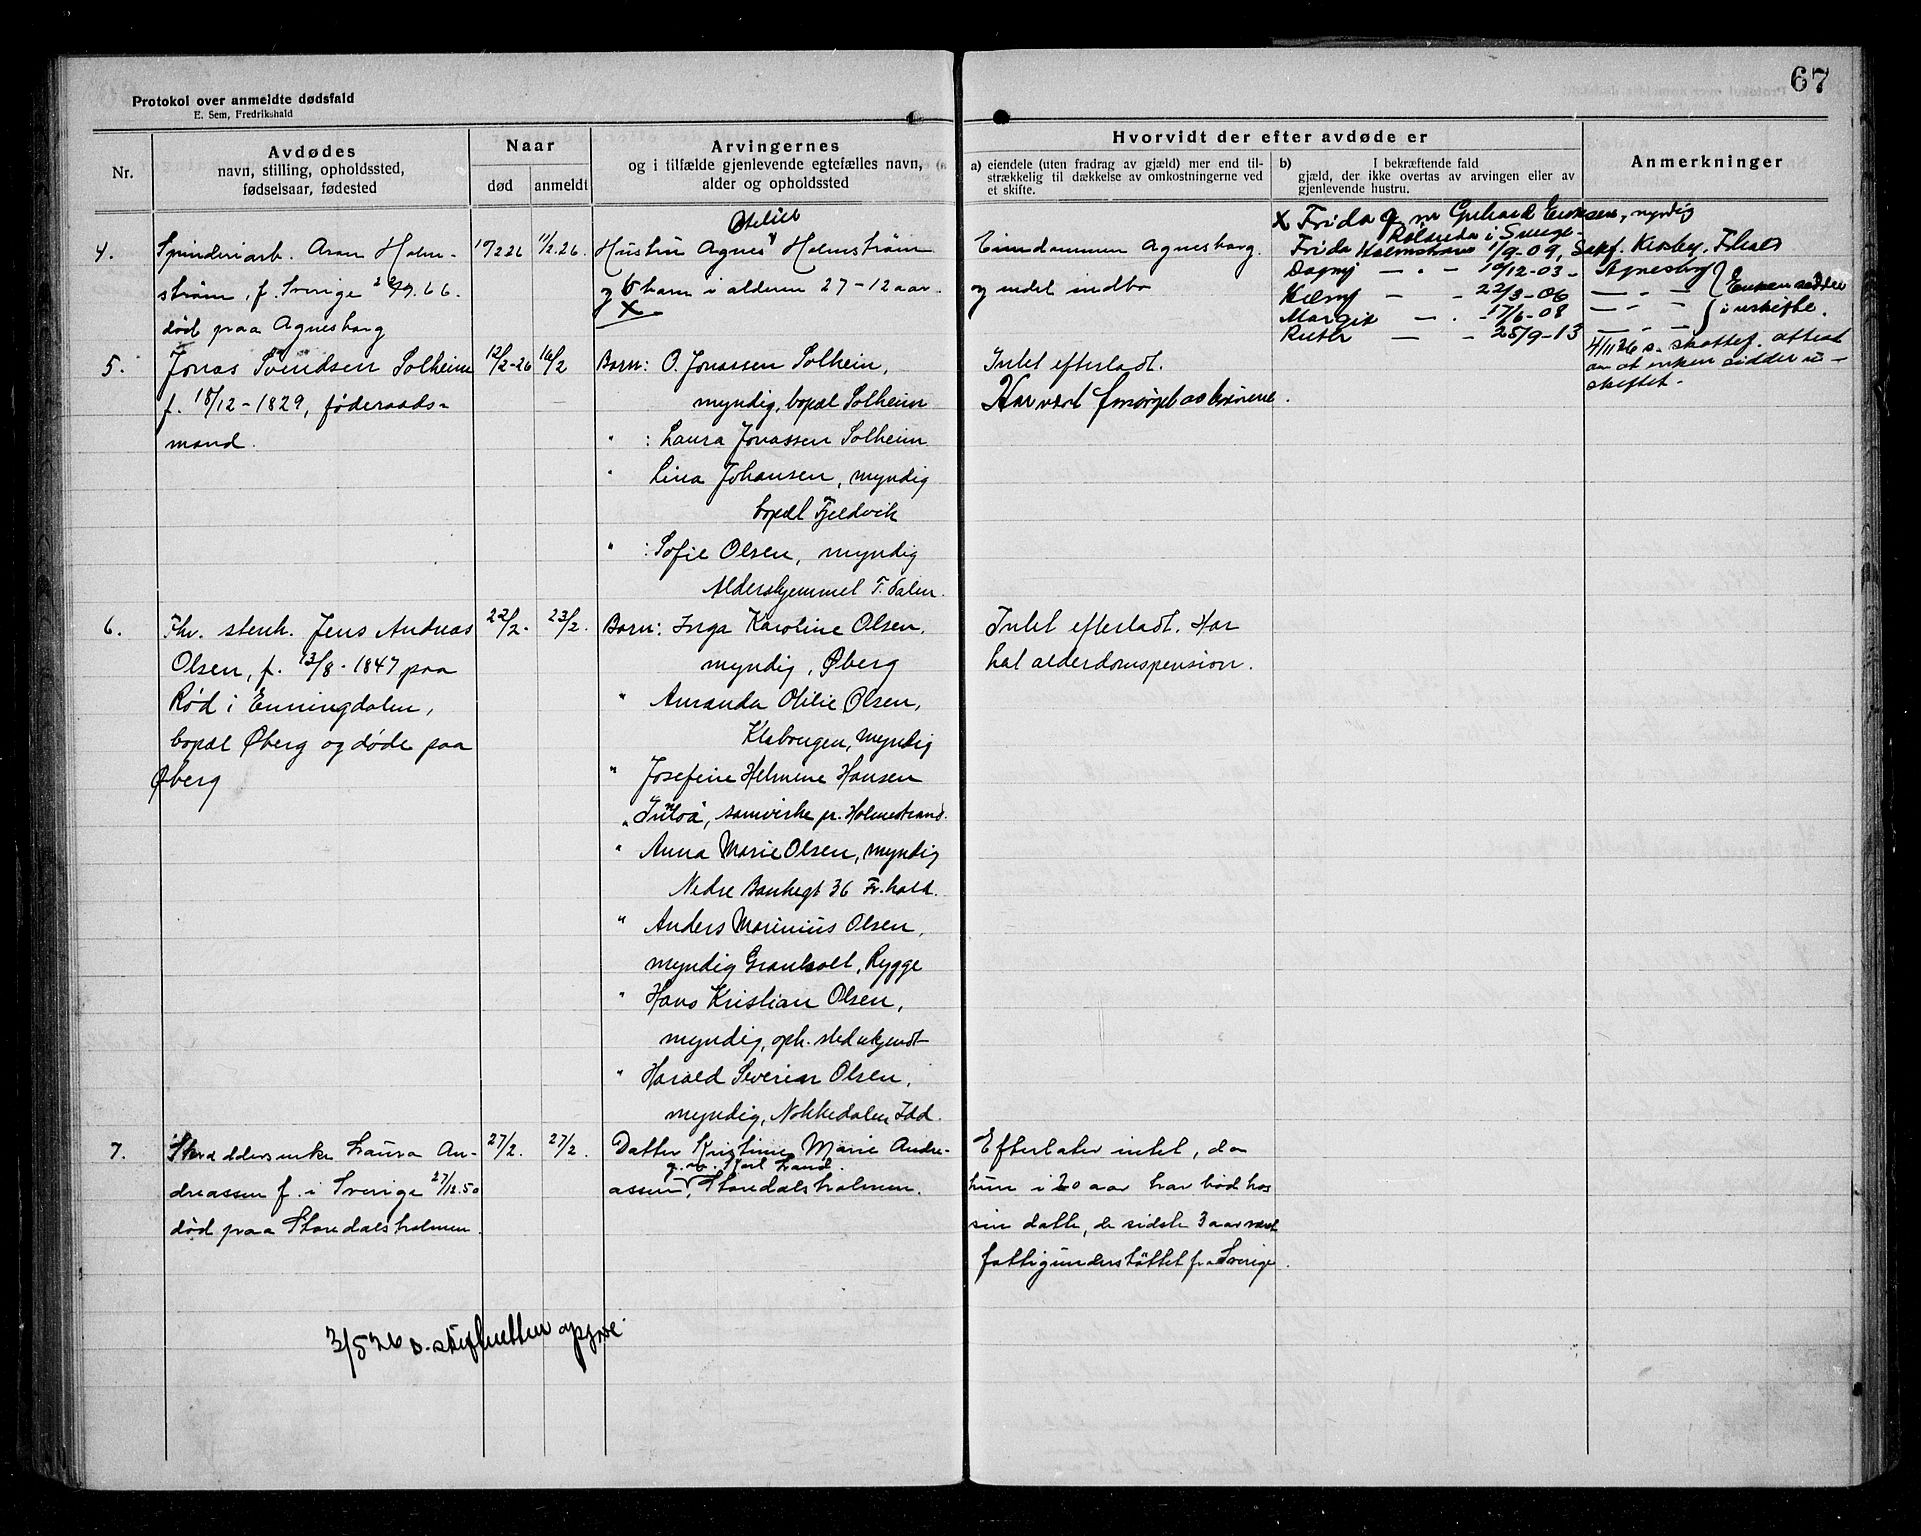 67
Protokol over anmeldte dødsfald
E. Sem, Fredrikshald
Nr.
Avdødes
navn, stilling, opholdssted,
fødselsaar, fødested
Naar
død
anmeldt
Arvingernes
og i tilfælde gjenlevende egtefælles navn,
alder og opholdssted
Hvorvidt der efter avdøde er
a) eiendele (uten fradrag av gjæld) mer end til-
strækkelig til dækkelse av omkostningerne ved
et skifte.
b) I bekræftende fald
gjæld, der ikke overtas av arvingen eller av
gjenlevende hustru.
Anmerkninger
4.
Spinderiarb. Aron Holm-
strøm, f. i Sverige
død paa Agnesborg
11/2.26.
Otilie
Hustru Agnes Holmstrøm
og 6 barn i alderen 27-12 aar.
X
Eiendommen Agnesborg
og endel indbo
X Frida g. m. Gerhard Eriksen, myndig
i Sverige
Frida Holmstrøm 1/9-09,
Dagny — " — 10/12-03 -
— - 22/3-06
Margit — . 17/6-08
Ruth — - 25/9-13
Agnesborg
Enken sidder
i uskifte.
4/11 26 s. skattef. attest
om at enken sidder u-
skiftet.
5.
Jonas Svendsen Solheim
f. 18/12-1829, føderaads-
mand.
12/2-26
16/2
Barn: O. Jonassen Solheim,
myndig, bopæl Solheim
" : Laura Jonassen Solheim
" Lina Johansen, myndig
bopæl Fjeldvik
" : Sofie Olsen, myndig
Aldershjemmet T.dalen.
Intet efterladt.
Har vært forsørget av børnene.
6.
Fhv. stenh. Jens Andreas
Olsen, f. 13/8-1847 paa
Rød i Enningdalen,
bopæl Øberg og døde paa
Øberg
22/2-
23/2.
Barn: Inga Karoline Olsen,
myndig, Øberg
" Amanda Otilie Olsen,
myndig
" Josefine Helmine Hansen
" samvirke pr. Holmestrand.
" Anna Marie Olsen, myndig
Nedre Bankegt 36 Fr.hald.
" Anders Marinius Olsen,
myndig Granholt, Rygge
" Hans Kristian Olsen,
myndig, oph. sted ukjendt
" Harald Severin Olsen,
myndig, Nokkedalen Idd.
Intet efterladt. Har
hat alderdomspension.
7.
Skræddersenke Laura An-
dreassen f. i Sverige 27/12.50
død paa Staredalsholmen.
27/2.
27/2.
Datter Kristine Marie Andre-
g. m. Karl Lund.
assen, Staredalsholmen.
Efterlater intet, da
hun i 20 aar har bod hos
sin datte, de sidste 3 aar vært
fattigunderstøttet fra Sverige.
3/5 26 s.